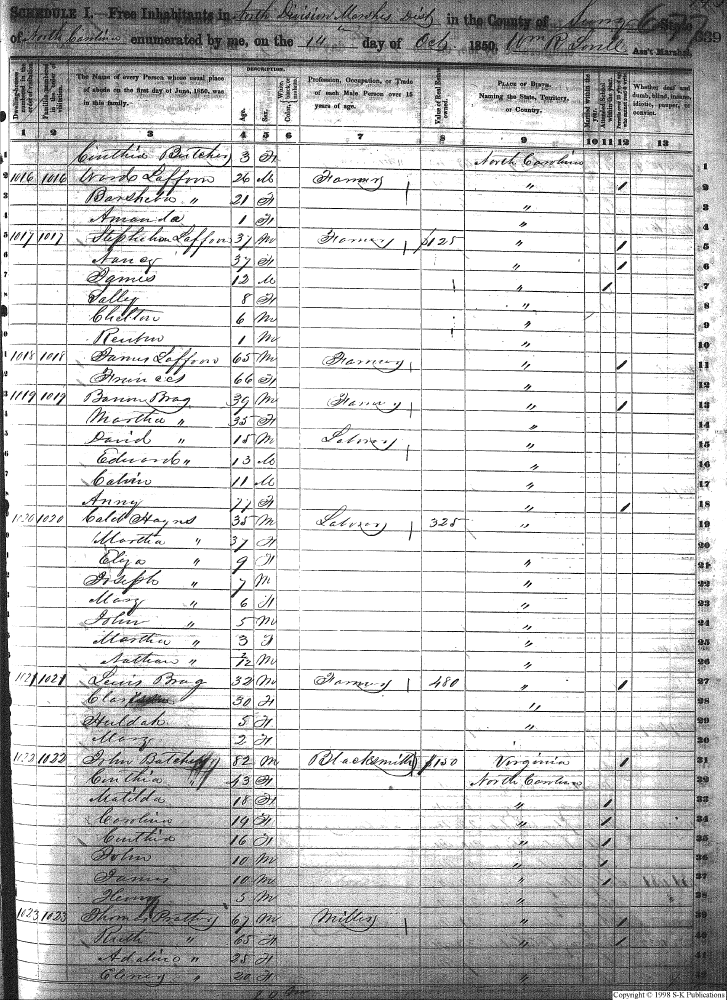 SCHEDULE I.—Free Inhabitants in North Division Marshes Dist in the County of Surry State
of North Carolina enumerated by me, on the 14 day of Oct 1850. Wm R Ass't Marshal. 339
Dwelling-houses numbered in the order of visitation.
Families numbered in the order of visitation.
The Name of every Person whose usual place of abode on the first day of June, 1850, was in this family.
DESCRIPTION.
Age.
Sex.
Color, White, black, or mulatto.
Profession, Occupation, or Trade of each Male Person over 15 years of age.
Value of Real Estate owned.
PLACE OF BIRTH. Naming the State, Territory, or Country.
Married within the year.
Attended School within the year.
Persons over 20 y'rs of age who cannot read & write.
Whether deaf and dumb, blind, insane, idiotic, pauper, or convict.
1 2 3 4 5 6 7 8 9 10 11 12 13
Cinthia Butcher 3 F North Carolina 1
1016 1016 Laffoon 26 M Farmer " / 2
Barsheba " 21 F " 3
Amanda 1 F " 4
1017 1017 Stephen Laffoon 37 M Farmer $125 " / 5
Nancy 37 F " / 6
James 12 M " / 7
Salley 8 F " 8
6 M " 9
Reuben 1 M " 10
1018 1018 James Laffoon 65 M Farmer " / 11
Frances 66 F " 12
1019 1019 Brag 39 M Farmer " / 13
Martha " 35 F " 14
David " 15 M Laborer " 15
Edward " 13 M " 16
Calvin 11 M " 17
Anny 77 F " / 18
1020 1020 Caleb Hayns 35 M Laborer 325 " 19
Martha " 37 F 20
Eliza " 9 F " 21
Joseph " 7 M " 22
Mary " 6 F " 23
John " 5 M " 24
Martha " 3 F " 25
Nathan " 2/12 M " 26
1021 1021 Lewis Brag 32 M Farmer 480 " / 27
30 F " 28
Huldah 5 F " 29
Mary 2 F 30
1022 1022 John Butcher 82 M Blacksmith $150 Virginia / 31
Cinthia " 43 F North Carolina 32
Matilda 18 F " / 33
Caroline 19 F " / 34
Cinthia 16 F " / 35
John 10 M " / 36
James 10 M " / 37
Henry 5 M " 38
1023 1023 Thomas 67 M Miller " / 39
Ruth " 65 F " / 40
Adaline " 25 F 41
" 20 F "
Copyright © 1998 S-K Publications